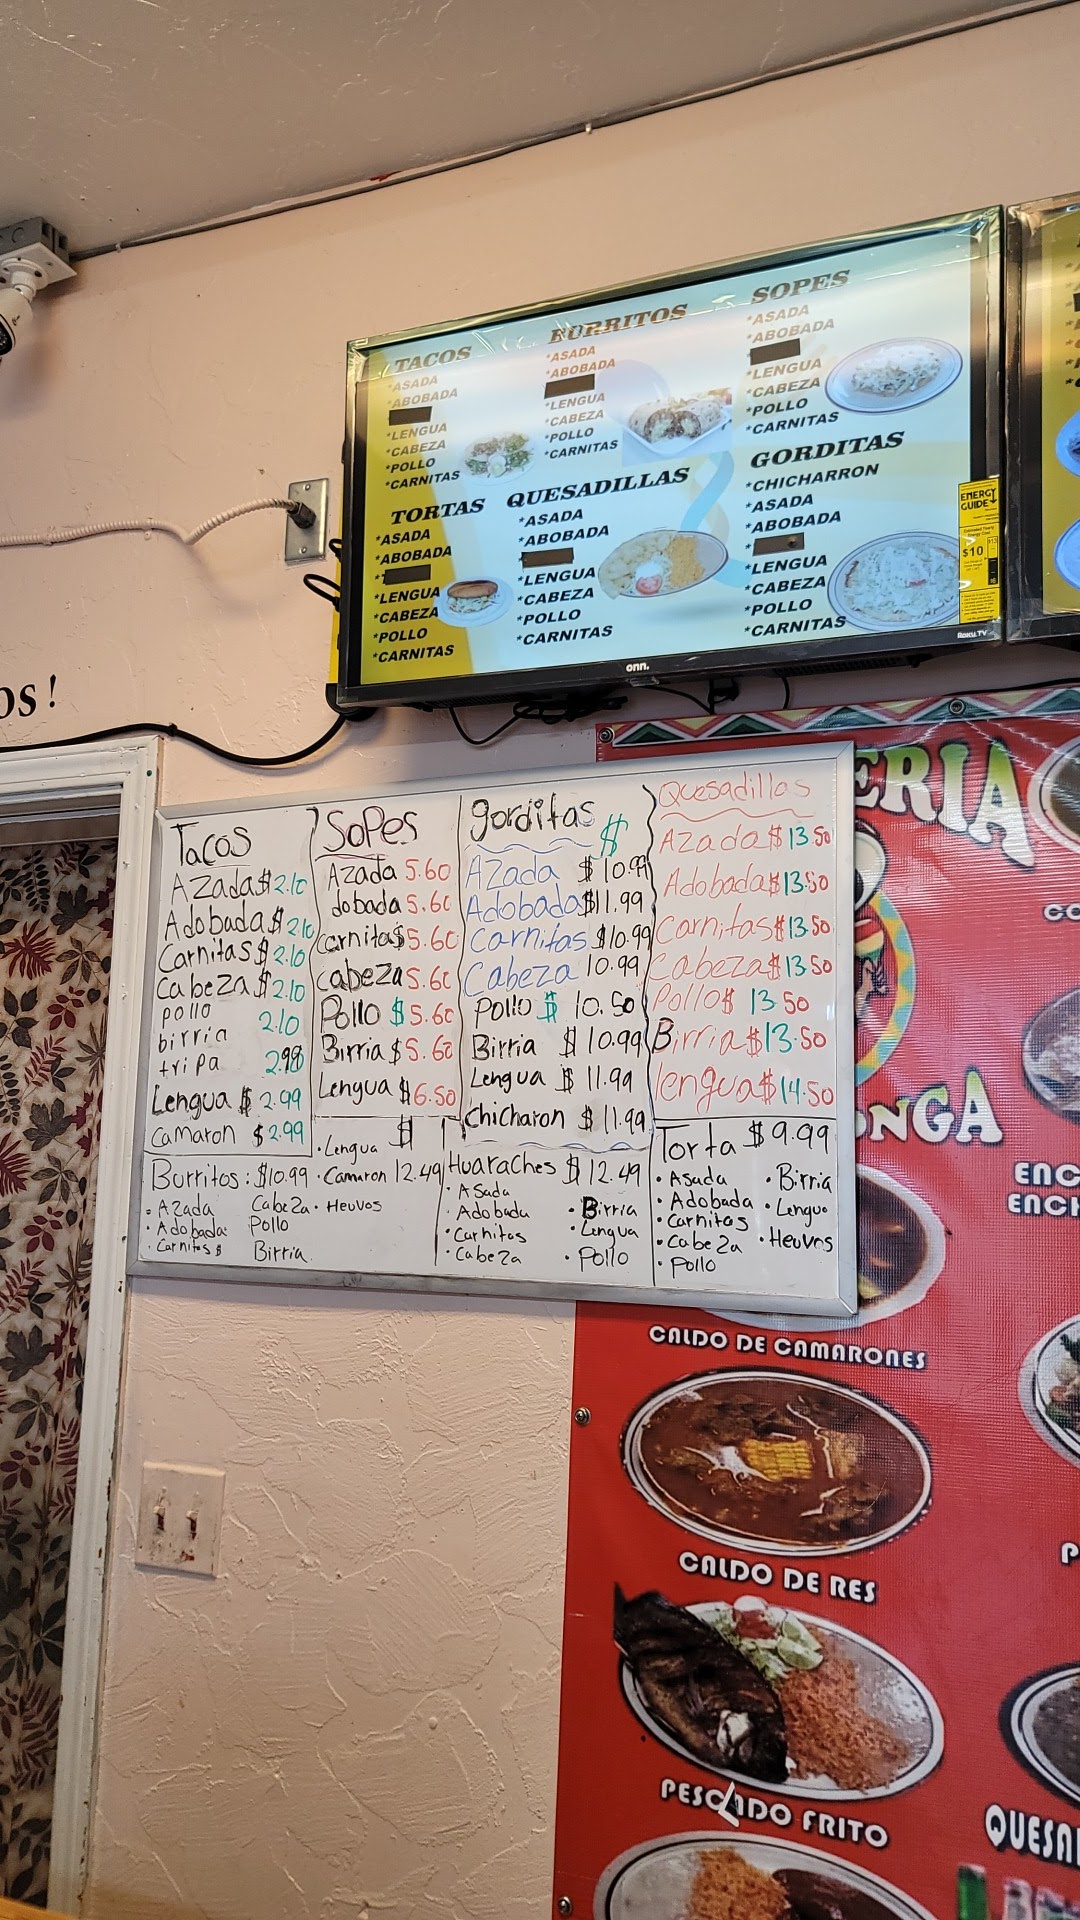 TACOS
*ASADA
*ABOBADA
*LENGUA
*CABEZA
*POLLO
*CARNITAS
BURRITOS
*ASADA
*ABOBADA
*LENGUA
*CABEZA
*POLLO
*CARNITAS
SOPES
*ASADA
*ABOBADA
*LENGUA
*CABEZA
*POLLO
*CARNITAS
TORTAS
*ASADA
*ABOBADA
*
*LENGUA
*CABEZA
*POLLO
*CARNITAS
QUESADILLAS
*ASADA
*ABOBADA
*LENGUA
*CABEZA
*POLLO
*CARNITAS
GORDITAS
*CHICHARRON
*ASADA
*ABOBADA
*
*LENGUA
*CABEZA
*POLLO
*CARNITAS
ENERGY
GUIDE
$10
onn.
Roku TV
OS!
Tacos
Azada $ 2.10
Adobada $ 2.10
Carnitas $ 2.10
Cabeza $ 2.10
pollo
birria 2.10
tripa 2.99
Lengua $ 2.99
Camaron $ 2.99
Sopes
Azada 5.60
dobada 5.60
Carnitas $ 5.60
cabeza 5.60
Pollo $ 5.60
Birria $ 5.60
Lengua $ 6.50
gorditas
$
Azada $ 10.99
Adobada $ 11.99
Carnitas $ 10.99
Cabeza 10.99
Pollo $ 10.50
Birria $ 10.99
Lengua $ 11.99
Chicharon $ 11.99
Quesadillas
Azada $ 13.50
Adobada $ 13.50
Carnitas $ 13.50
Cabeza $ 13.50
Pollo $ 13 50
Birria $ 13.50
lengua $ 14.50
Burritos : $10.99
• Azada
• Adobada
• Carnitas
Cabeza
Pollo
Birria
• Lengua $
• Camaron 12.49
• Heuvos
Huaraches $ 12.49
• Asada
• Adobada
• Carnitas
• Cabeza
• Birria
• Lengua
• Pollo
Torta $ 9.99
• Asada
• Adobada
• Carnitas
• Cabeza
• Pollo
• Birria
• Lengua
• Heuvos
ERIA
NGA
CO
ENC
ENCH
CALDO DE CAMARONES
CALDO DE RES
P
PESCADO FRITO
QUESA